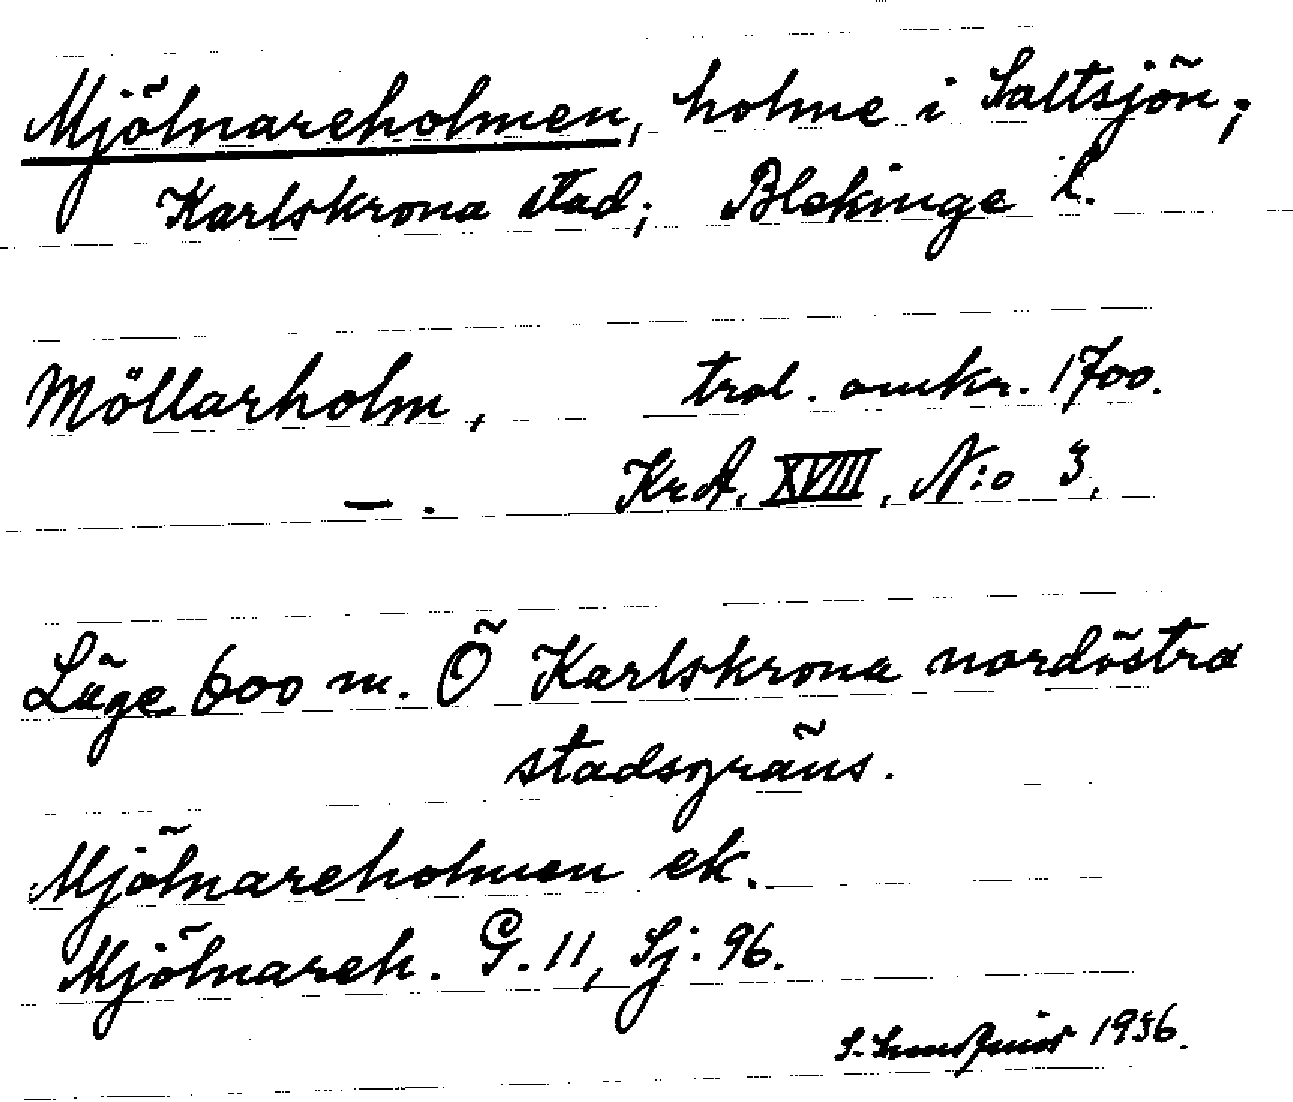 Mjölnareholmen, holme i Saltsjön;
Karlskrona stad; Blekinge l.
Möllarholm, trol. omkr. 1700.
— . KrA. XVIII, N:o 3.
Läge 600 m. Ö Karlskrona nordöstra
stadsgräns.
Mjölnareholmen ek.
Mjölnareh. G. 11, Sj: 96.
S. 1936.